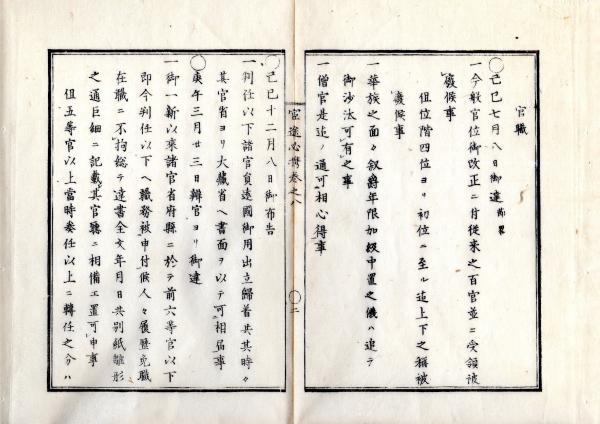 官職
〇己巳七月八日御達 節畧
一今般官位御改正ニ付従来之百官並ニ受領被
廢候事
但位階四位ヨリ初位ニ至ル迠上下之稱被
廢候事
一華族之面々叙爵年限加級申置之儀ハ追テ
御沙汰可有之事
一僧官是迠ノ通可相心得事
官途必携巻之八
〇二
〇己巳十二月八日御布告
一判任以下諸官員遠國御用出立歸着共其時々
其官省ヨリ大藏省ヘ書面ヲ以テ可相届事
〇庚午三月廿三日辨官ヨリ御達
一御一新以来諸官省府縣ニ於テ前六等官以下
即今判任以下ヘ職務被申付候人々履歴免職
在職ニ不拘総テ達書全文年月日共別紙雛形
之通巨細ニ記載其官廳ニ相備エ置可申事
但五等官以上當時奏任以上ニ轉任之分ハ